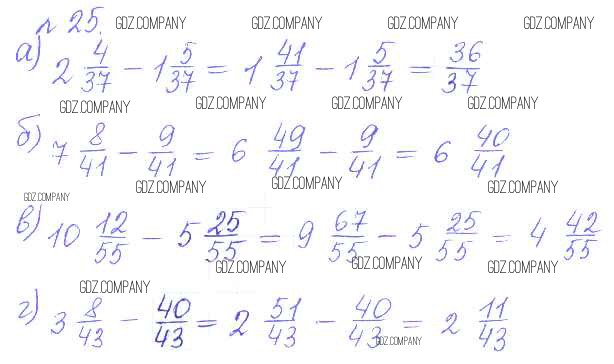 № 25.
GDZ.COMPANY GDZ.COMPANY GDZ.COMPANY GDZ.COMPANY
а) 2 4/37 − 1 5/37 = 1 41/37 − 1 5/37 = 36/37
GDZ.COMPANY GDZ.COMPANY GDZ.COMPANY GDZ.COMPANY
б) 7 8/41 − 9/41 = 6 49/41 − 9/41 = 6 40/41
GDZ.COMPANY GDZ.COMPANY GDZ.COMPANY
GDZ.COMPANY
в) 10 12/55 − 5 25/55 = 9 67/55 − 5 25/55 = 4 42/55
GDZ.COMPANY GDZ.COMPANY GDZ.COMPANY
GDZ.COMPANY
г) 3 8/43 − 40/43 = 2 51/43 − 40/43 = 2 11/43
GDZ.COMPANY